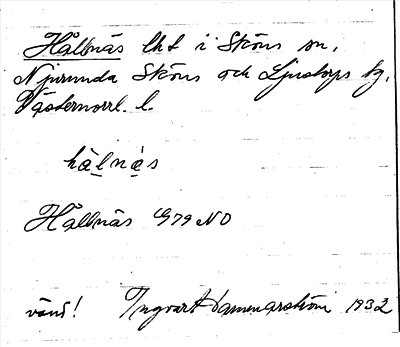 Hällnäs lht i Sköns sn,
Njurunda Sköns och Ljustorps tg,
Västernorrl. l.
hälnäs
Hällnäs G79 NO
vänd! Ingvart 1932